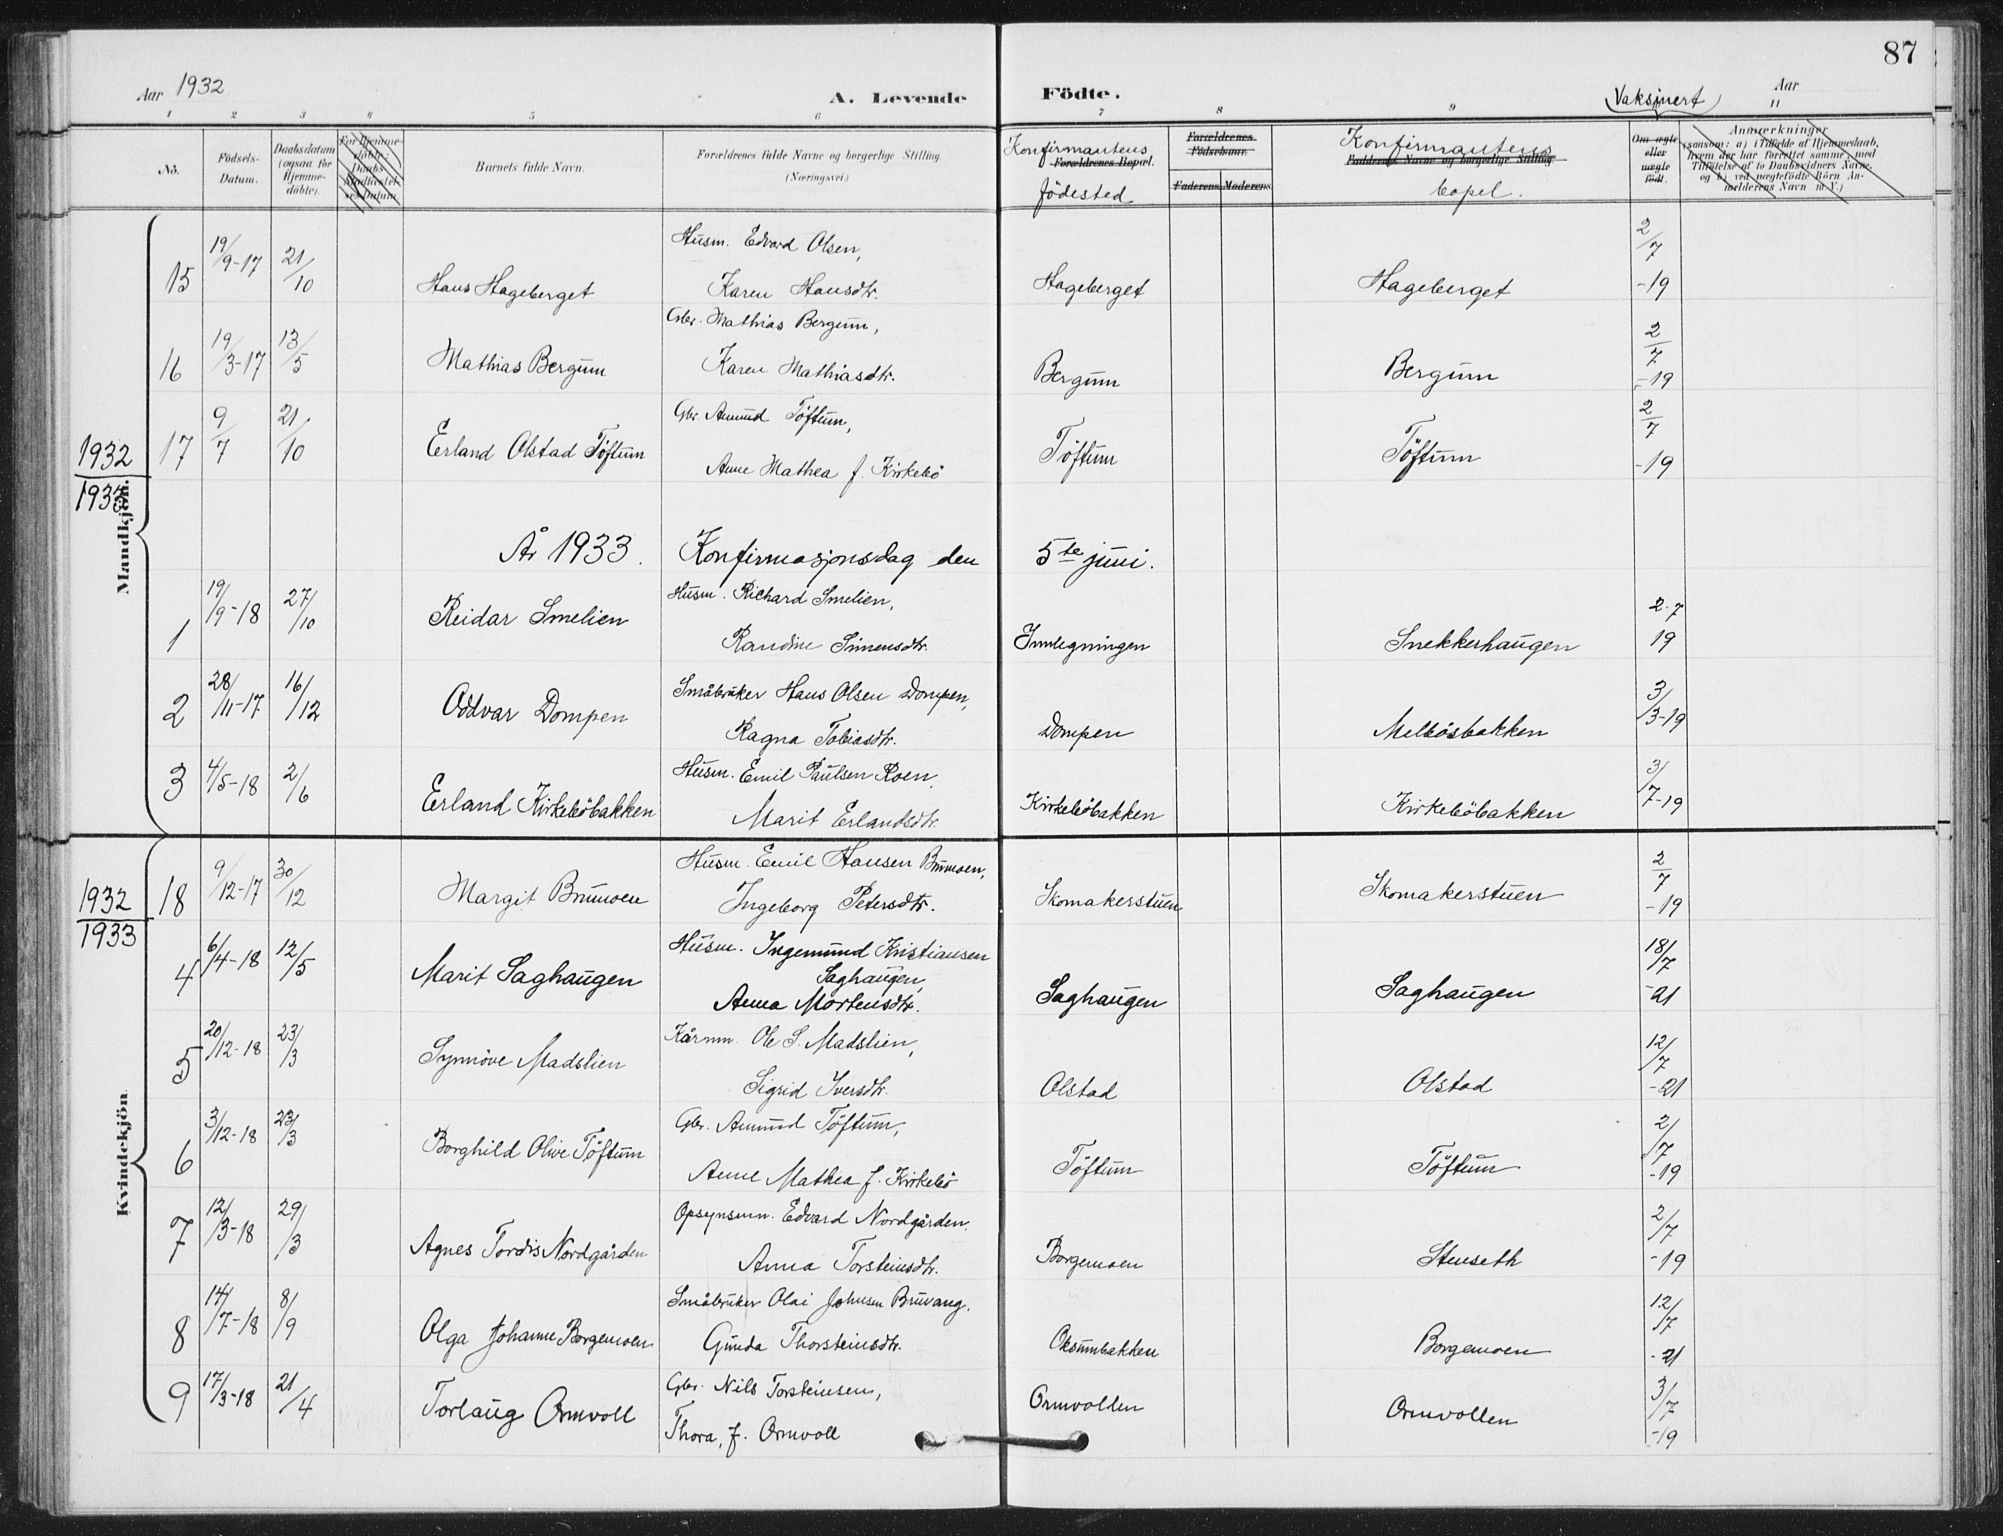 87
Aar 1932 A. Levende Födte. Vaksinert Aar
1 2 3 6 5 6 7 8 9 11
No. Födsels-Datum. Daabsdatum (ogsaa för Hjemme-döbte). Barnets fulde Navn. Forældrenes fulde Navne og borgerlige Stilling. (Næringsvei.) Konfirmantens Forældrenes Bopæl. födested Forældrenes Födselsaar. Faderens Moderens Konfirmantens Faddernes Navne og borgerlige Stilling bopel. Om ægte eller uægte födt. Anmærkninger
1932
1933
Mandkjön.
15 19/9-17 21/10 Hans Hageberget Husm. Edvard Olsen, Karen Hansdtr. Hageberget Hageberget 2/7 -19
16 19/3-17 13/5 Mathias Bergum Gbr. Mathias Bergum, Karen Mathiasdtr. Bergum Bergum 2/7 -19
17 9/7 21/10 Erland Olstad Töftum Gbr. Amund Töftum, Anne Mathea f. Kirkebö Töftum Töftum 2/7 -19
År 1933. Konfirmasjonsdag den 5te juni.
1 19/9-18 27/10 Reidar Smelien Husm. Richard Smelien, Randine Simensdtr. Innlegningen Snekkerhaugen 2-7 19
2 28/11-17 16/12 Oddvar Dompen Småbruker Hans Olsen Dompen, Ragna Tobiasdtr. Dompen Melbösbakken 3/3-19
3 4/5-18 2/6 Erland Kirkeböbakken Husm. Emil Paulsen Roen, Marit Erlandsdtr. Kirkeböbakken Kirkeböbakken 3/7-19
1932
1933
Kvindekjön
18 9/12-17 30/12 Margit Brumoen Husm. Emil Hansen Brumoen, Ingeborg Petersdtr. Skomakerstuen Skomakerstuen 2/7 -19
4 6/4-18 12/5 Marit Saghaugen Husm. Ingemund Kristiansen Saghaugen, Anna Mortensdtr. Saghaugen Saghaugen 18/7 -21
5 20/12-18 23/3 Synnöve Madslien Kårmn. Ole S. Madslien, Sigrid Iversdtr. Olstad Olstad 12/7 -21
6 3/12-18 23/3 Borghild Olive Töftum Gbr. Amund Töftum, Anne Mathea f. Kirkebö Töftum Töftum 2/7 -19
7 12/3-18 29/3 Agnes Tordis Nordgården Opsynsmn. Edvard Nordgården, Anna Torsteinsdtr. Borgemoen Stenseth 2/7 -19
8 14/7-18 8/9 Olga Johanne Borgemoen Småbruker Olai Johnsen Bruvang. Gunda Thorsteinsdtr. Oksumbakken Borgemoen 12/7 -21
9 17/3-18 21/4 Torlaug Ormvoll Gbr. Nils Torsteinsen, Thora, f. Ormvoll Ormvollen Ormvollen 3/7 -19